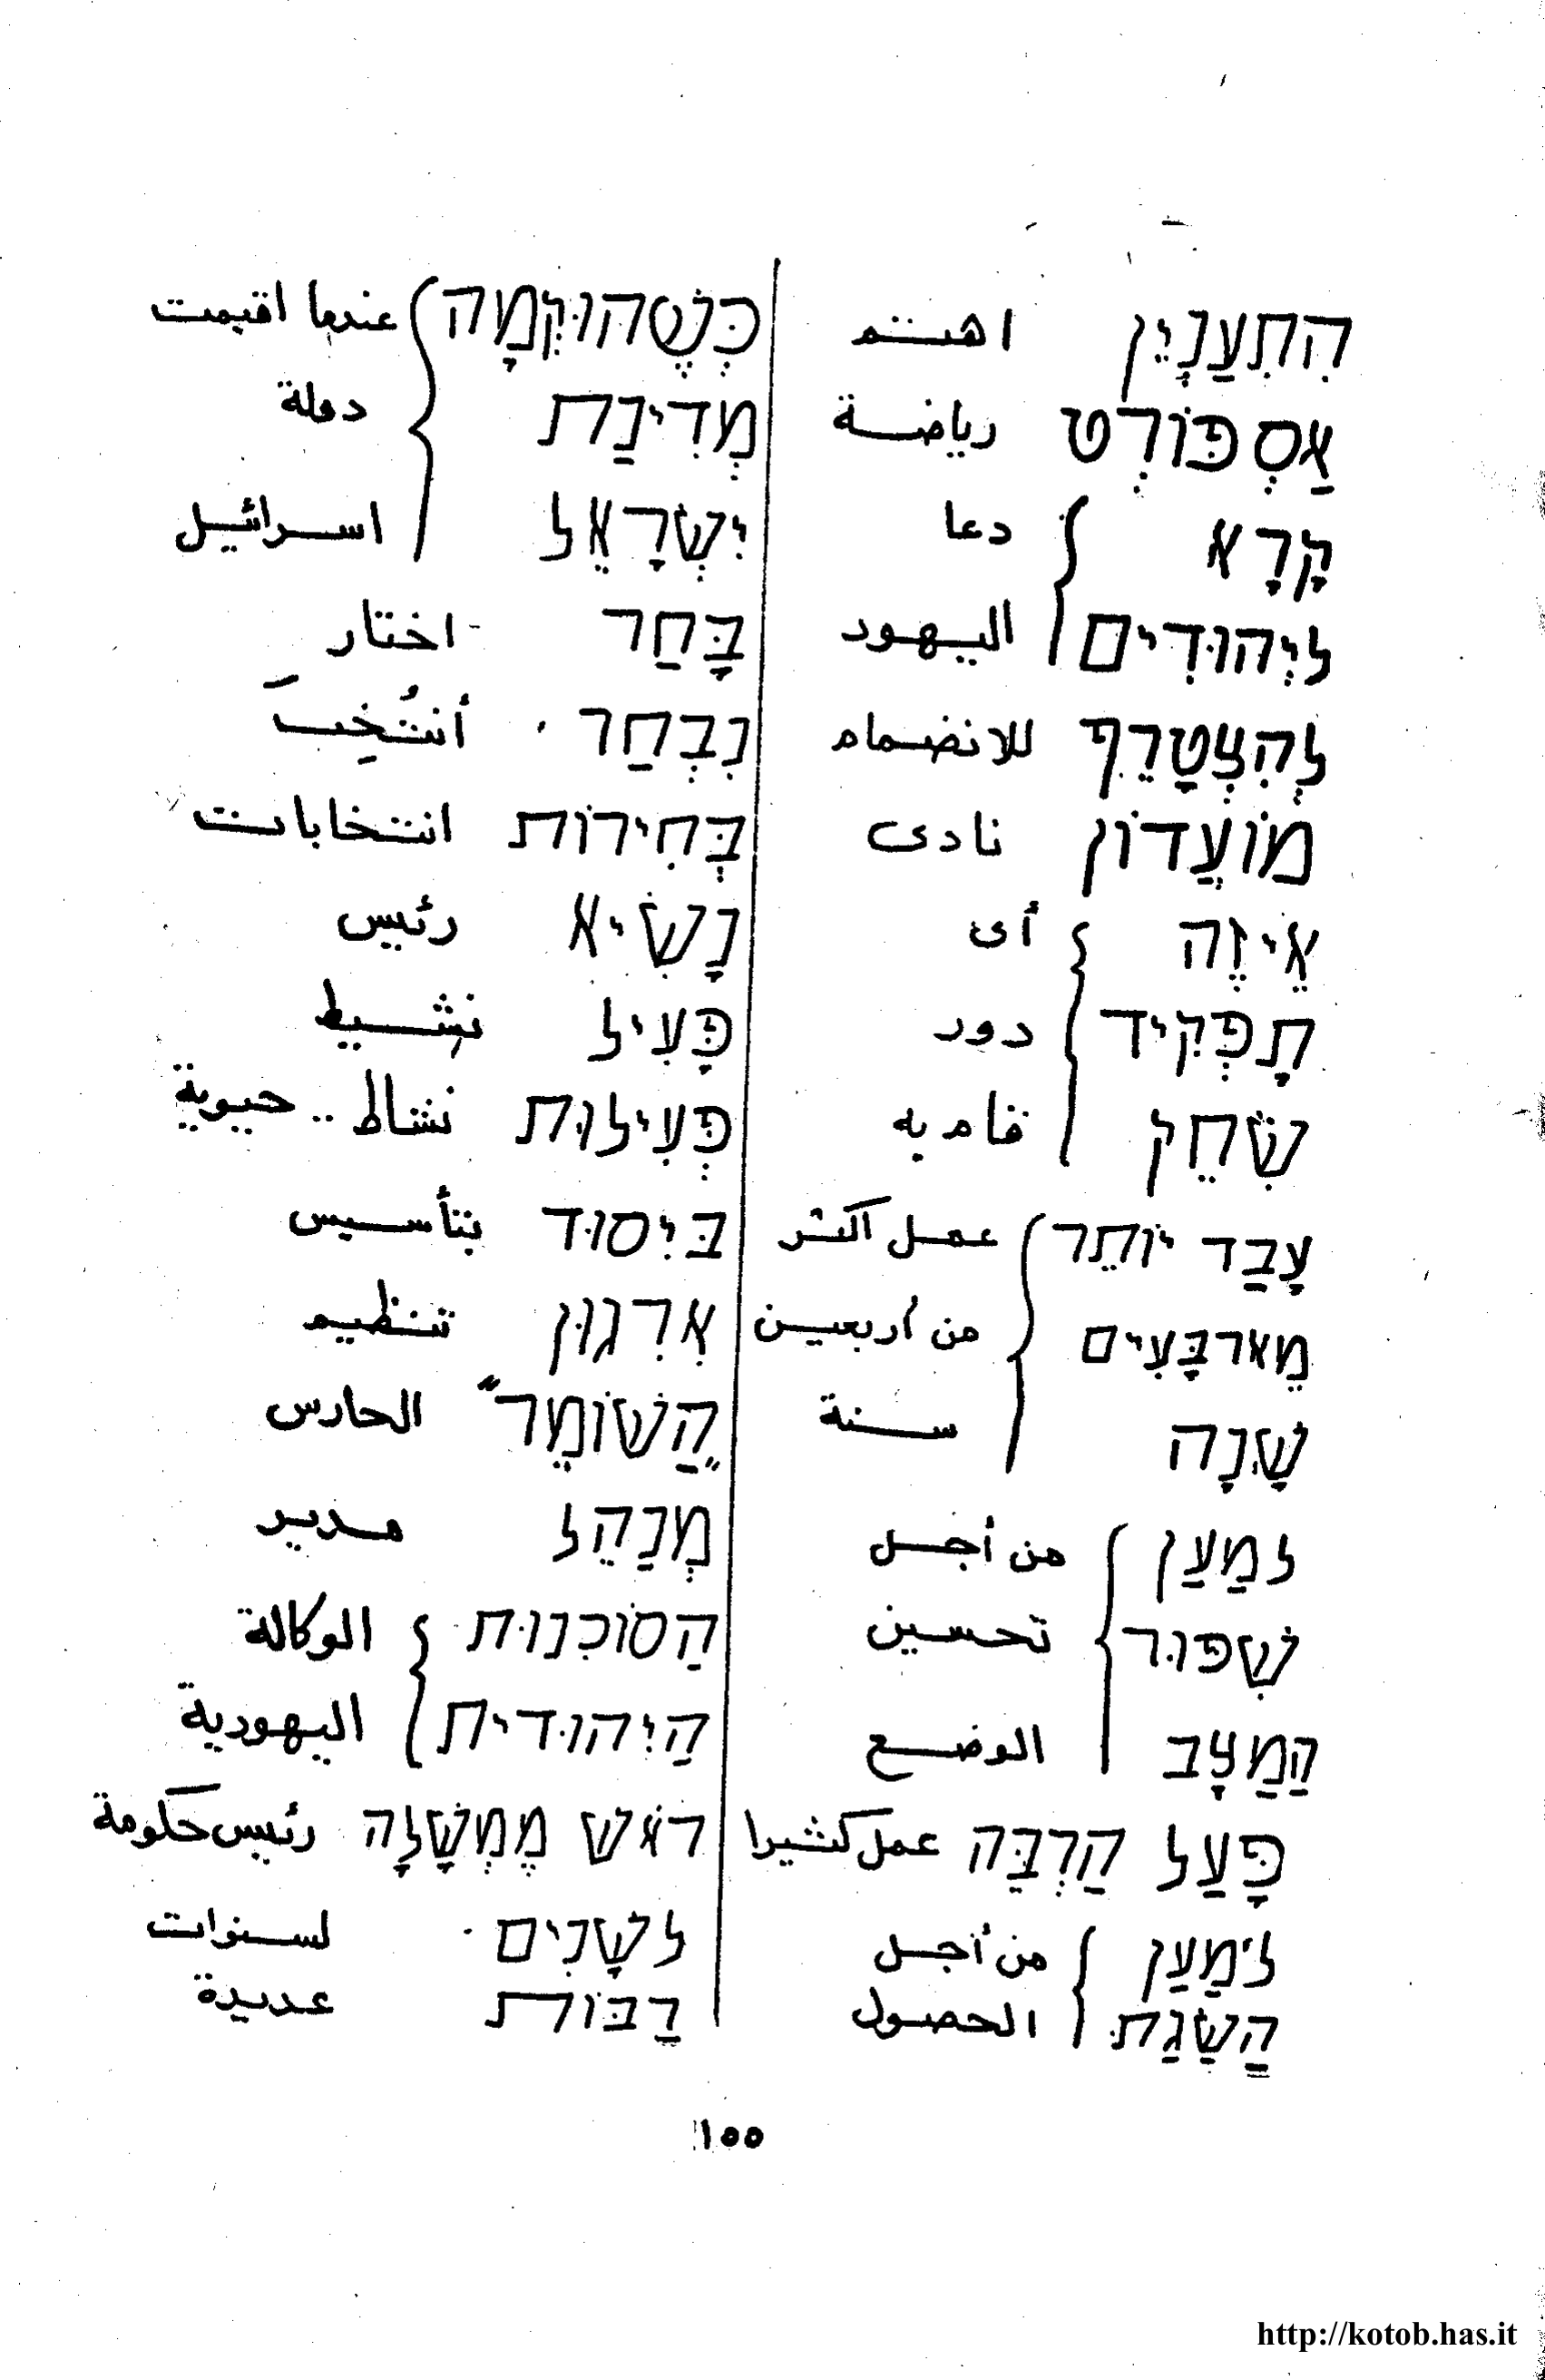 הִתְעַנְיֵן اهتم
אַסְפּוֹרְט رياضة
קָרָא دعا
לַיְהוּדִים اليهود
לְהִצְטָרֵף للانضمام
מוֹעֲדוֹן نادى
אֵיזֶה أى
תָפְקִיד دور
שִׂחֵק قام به
עָבַד יוֹתֵר عمل اكثر
מֵארבָּעִים من أربعين
שָׁנָה سنة
למַעַן من أجل
שִׁפּוּר تحسين
הַמַצָב الوضع
פָּעַל הַרְבֵּה عمل كثيرا
למַעַן من أجل
הַשָׂגַת الحصول
כְּשֶׁהוּקְמָה عندما اقيمت
מְדִינַת دولة
יִשְׂרָאֵל اسرائيل
בָּחַר اختار
נִבְחַר أنتُخِبَ
בְּחִירוֹת انتخابات
נָשִׂיא رئيس
פָּעִיל نشيط
פְּעִילוּת نشاط .. حيوية
בּיִסוּד بتأسيس
אִרְגוּן تنظيم
"הַשׁוֹמֵר" الحارس
מְנַהֵל مدير
הַסוֹכנוּת الوكالة
הַיִהוּדִית اليهودية
ראֹשׁ מֶמְשָׁלָה رئيس حكومة
לשָׁנִים لسنوات
רַבּוֹת عديدة
١٥٥
http://kotob.has.it